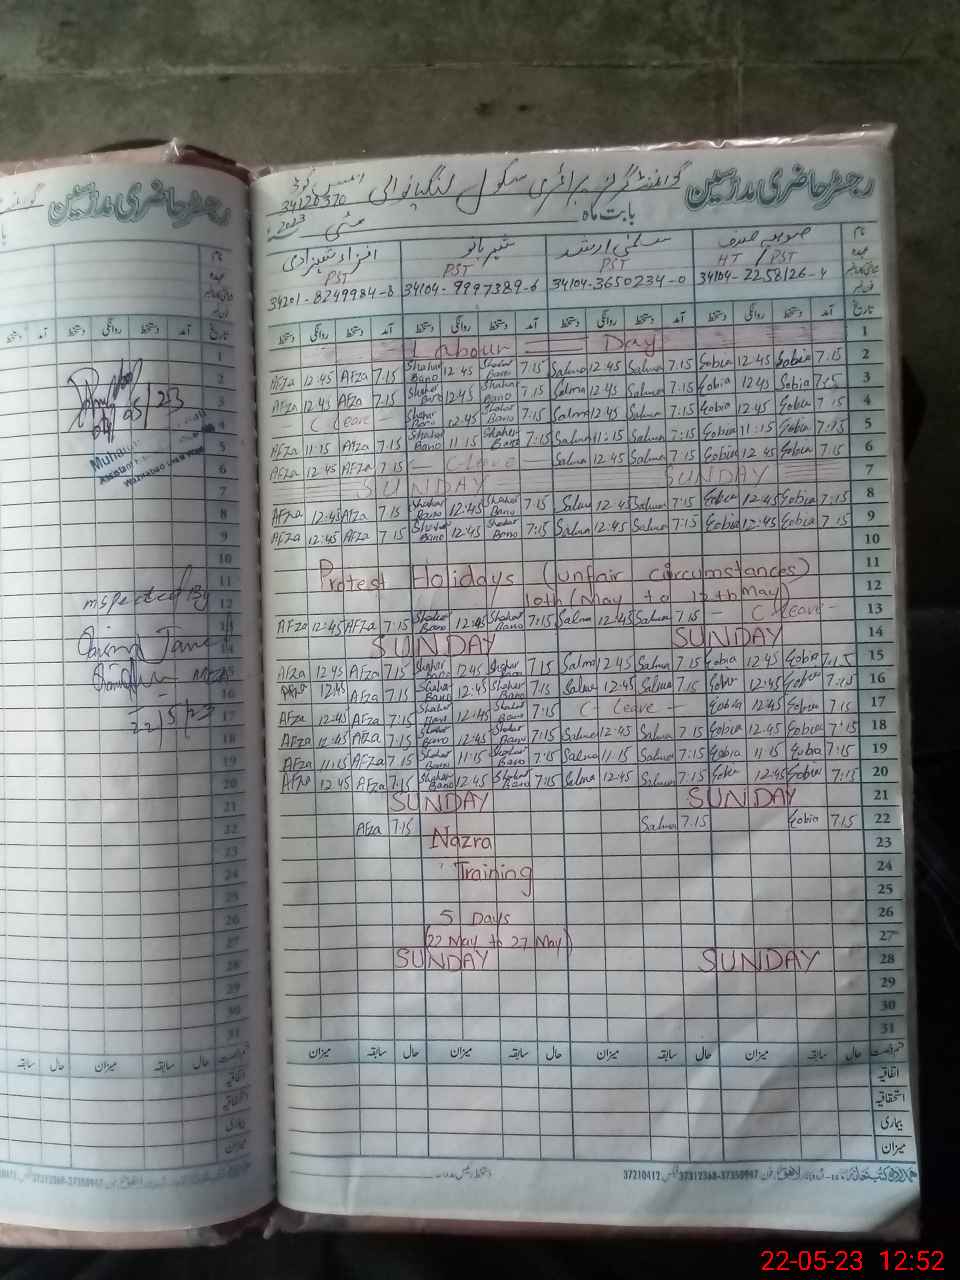 رجسٹر حاضری مدرسین
گورنمنٹ گرلز پرائمری سکول
34120370
بابت ماہ مئی 2023
نام
صوبیہ صدف
سلمیٰ ارشد
شہر بانو
افزاء شہزادی
عہدہ
HT / PST
PST
PST
PST
34104-2258126-4
34104-3650234-0
34104-9997389-6
34201-8249984-8
تاریخ آمد دستخط روانگی دستخط آمد دستخط روانگی دستخط آمد دستخط روانگی دستخط آمد دستخط روانگی دستخط
Labour Day 1
Afza 12:45 Afza 7:15 Shahar Bano 12:45 Shahar Bano 7:15 Salma 12:45 Salma 7:15 Sobia 12:45 Sobia 7:15 2
Afza 12:45 Afza 7:15 Shahar Bano 12:45 Shahar Bano 7:15 Salma 12:45 Salma 7:15 Sobia 12:45 Sobia 7:15 3
- C Leave - Shahar Bano 12:45 Shahar Bano 7:15 Salma 12:45 Salma 7:15 Sobia 12:45 Sobia 7:15 4
Afza 11:15 Afza 7:15 Shahar Bano 11:15 Shahar Bano 7:15 Salma 11:15 Salma 7:15 Sobia 11:15 Sobia 7:15 5
Afza 12:45 Afza 7:15 - C Leave - Salma 12:45 Salma 7:15 Sobia 12:45 Sobia 7:15 6
SUNDAY SUNDAY 7
Afza 12:45 Afza 7:15 Shahar Bano 12:45 Shahar Bano 7:15 Salma 12:45 Salma 7:15 Sobia 12:45 Sobia 7:15 8
Afza 12:45 Afza 7:15 Shahar Bano 12:45 Shahar Bano 7:15 Salma 12:45 Salma 7:15 Sobia 12:45 Sobia 7:15 9
10
Protest Holidays (unfair circumstances) 11
10th (May to 12th May) 12
Afza 12:45 Afza 7:15 Shahar Bano 12:45 Shahar Bano 7:15 Salma 12:45 Salma 7:15 - C Leave - 13
SUNDAY SUNDAY 14
Afza 12:45 Afza 7:15 Shahar Bano 12:45 Shahar Bano 7:15 Salma 12:45 Salma 7:15 Sobia 12:45 Sobia 7:15 15
Afza 12:45 Afza 7:15 Shahar Bano 12:45 Shahar Bano 7:15 Salma 12:45 Salma 7:15 Sobia 12:45 Sobia 7:15 16
Afza 12:45 Afza 7:15 Shahar Bano 12:45 Shahar Bano 7:15 C- Leave - Sobia 12:45 Sobia 7:15 17
Afza 12:45 Afza 7:15 Shahar Bano 12:45 Shahar Bano 7:15 Salma 12:45 Salma 7:15 Sobia 12:45 Sobia 7:15 18
Afza 11:15 Afza 7:15 Shahar Bano 11:15 Shahar Bano 7:15 Salma 11:15 Salma 7:15 Sobia 11:15 Sobia 7:15 19
Afza 12:45 Afza 7:15 Shahar Bano 12:45 Shahar Bano 7:15 Salma 12:45 Salma 7:15 Sobia 12:45 Sobia 7:15 20
SUNDAY SUNDAY 21
Afza 7:15 Salma 7:15 Sobia 7:15 22
Nazra 23
Training 24
25
5 Days 26
(22 May to 27 May) 27
SUNDAY SUNDAY 28
29
30
31
حال سابقہ میزان حال سابقہ میزان حال سابقہ میزان حال سابقہ میزان
اتفاقیہ
استحقاقیہ
بیماری
میزان
37210412 37312368-37350947
رجسٹر حاضری مدرسین
نام
عہدہ
تاریخ آمد دستخط روانگی دستخط آمد
1
2
3
4
5
6
7
8
9
10
11
Inspected By
12
13
14
15
16
22/5/23
17
18
19
20
21
22
23
24
25
26
27
28
29
30
31
حال سابقہ میزان حال سابقہ
اتفاقیہ
استحقاقیہ
بیماری
میزان
37312368-37350947
22-05-23 12:52